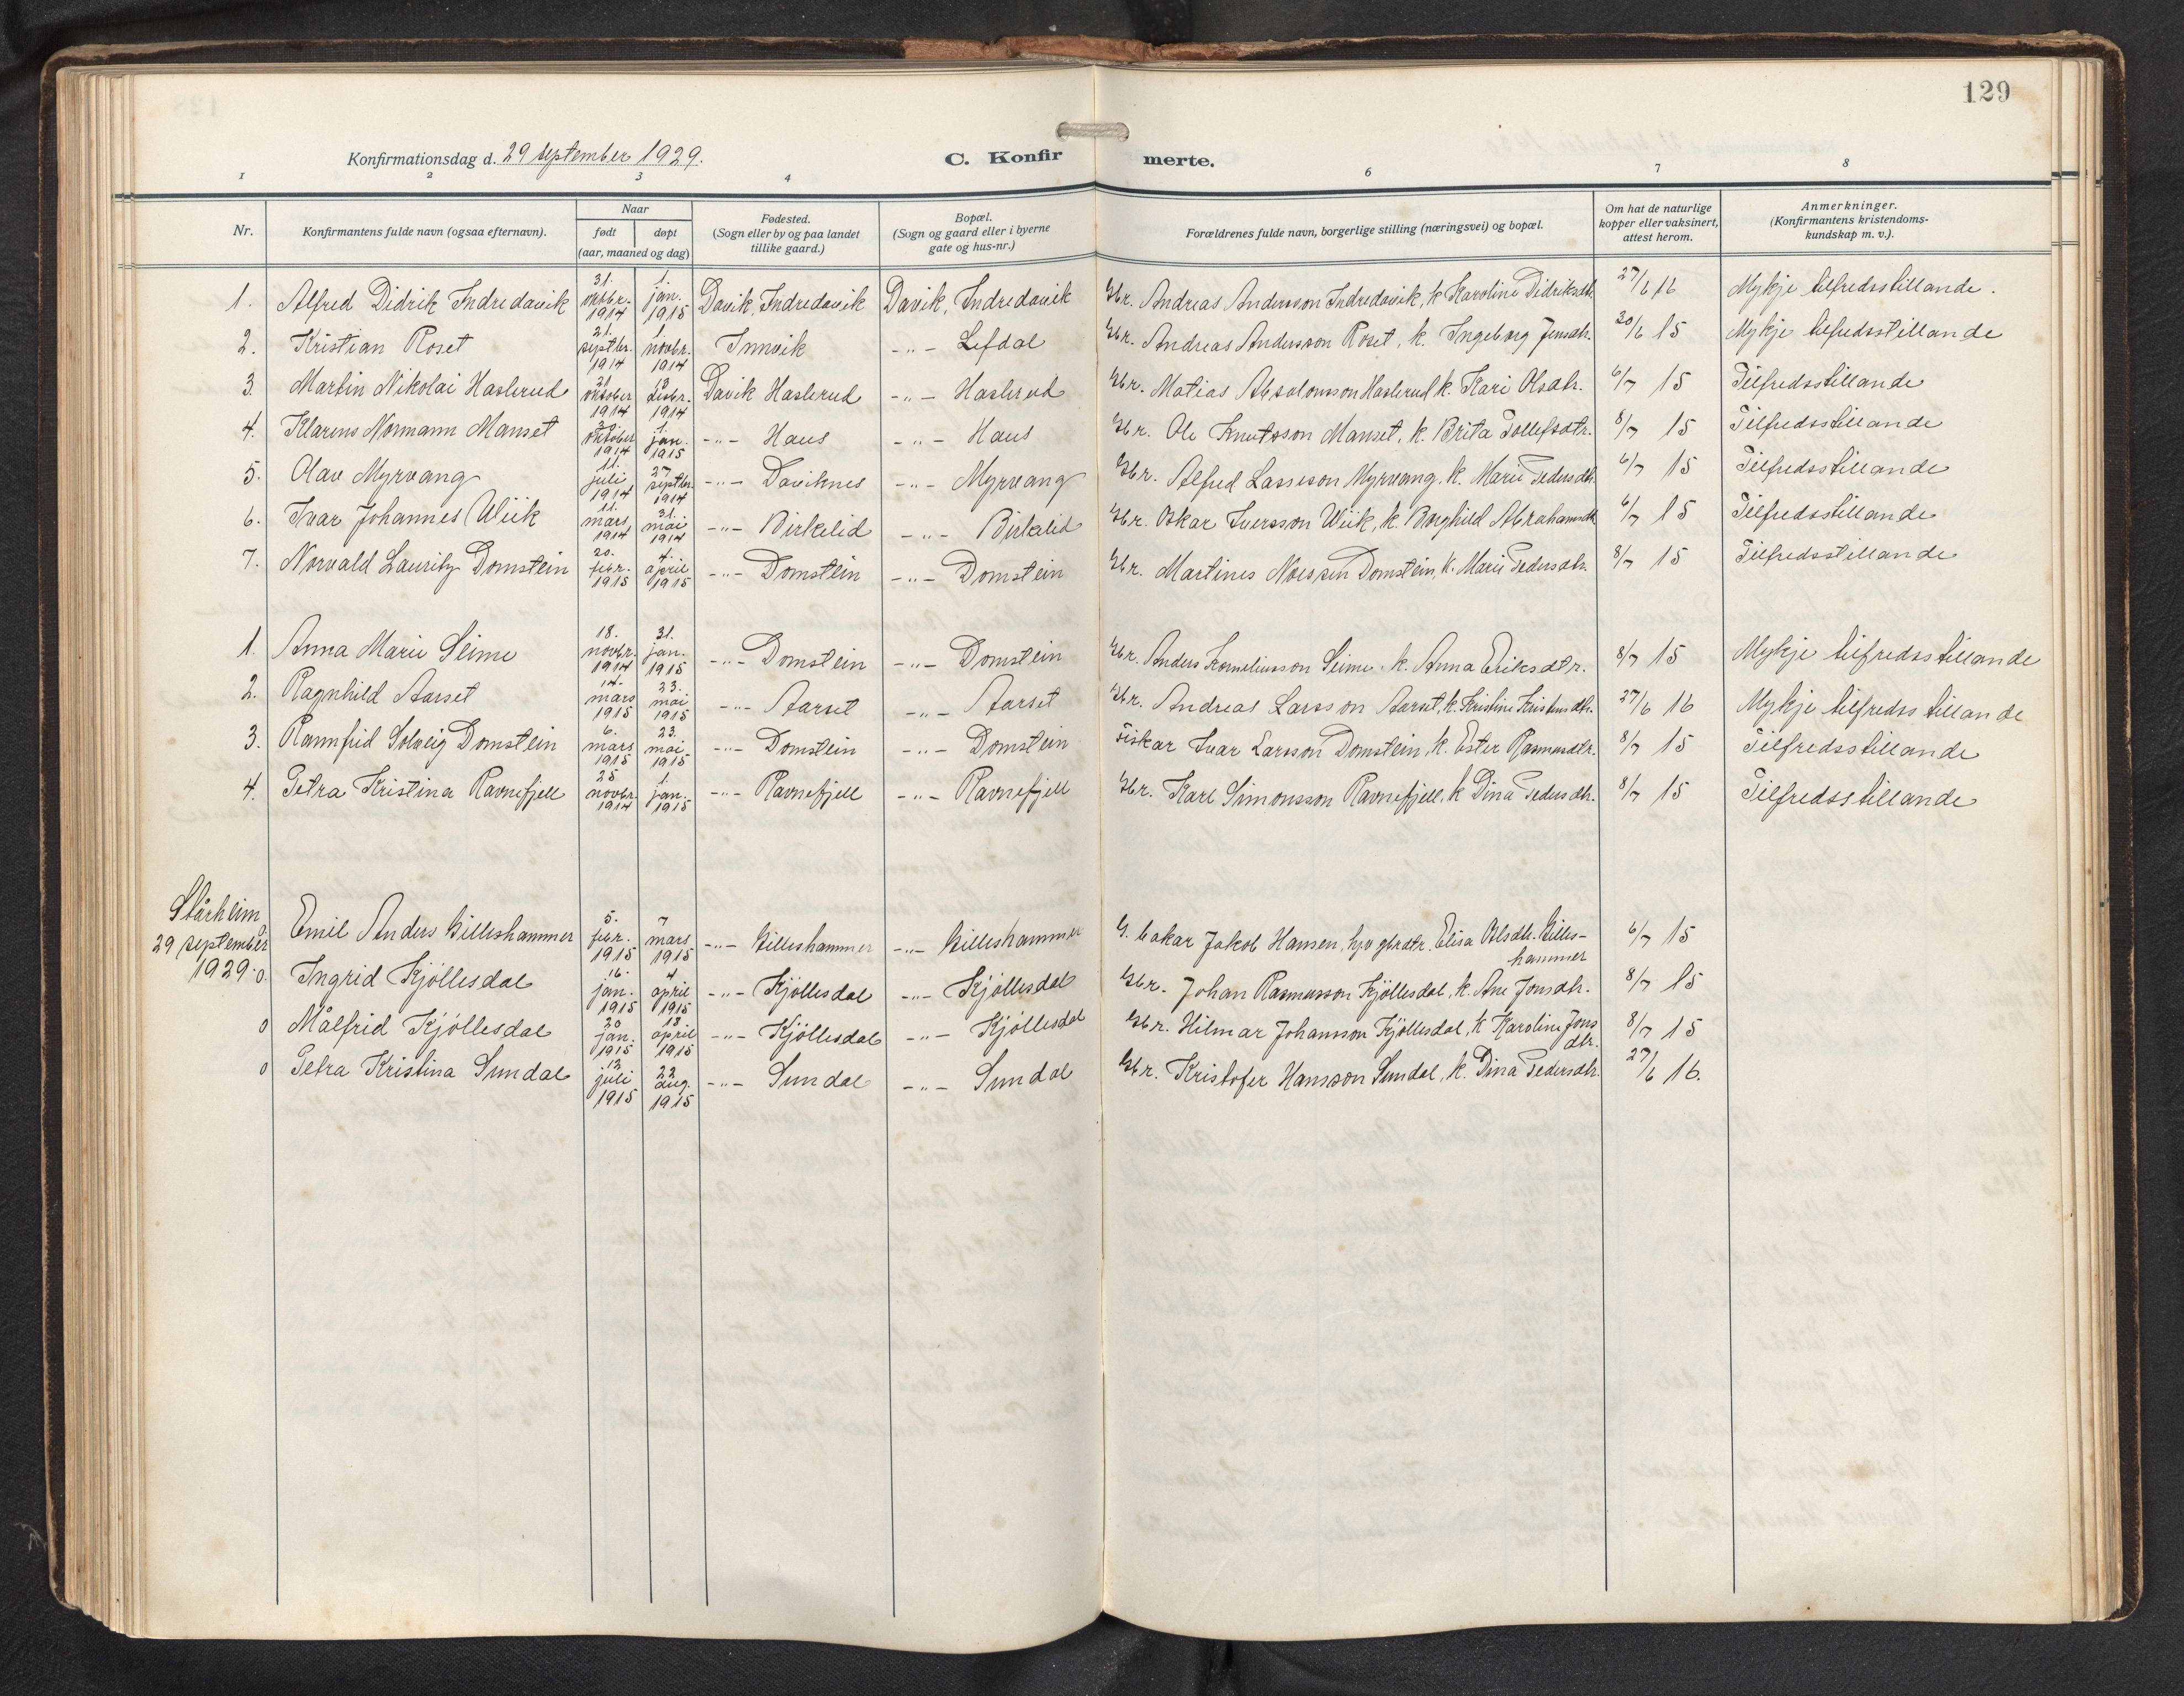 129
Konfirmationsdag d. 29 september 1929.
C. Konfirmerte.
1 2 3 4 6 7 8
Nr. | Konfirmantens fulde navn (ogsaa efternavn). | Naar født døpt (aar, maaned og dag) | Fødested. (Sogn eller by og paa landet tillike gaard.) | Bopæl. (Sogn og gaard eller i byerne gate og hus-nr.) | Forældrenes fulde navn, borgerlige stilling (næringsvei) og bopæl. | Om hat de naturlige kopper eller vaksinert, attest herom. | Anmerkninger. (Konfirmantens kristendoms-kundskap m. v.).
1. Alfred Didrik Indredavik 31. oktbr. 1914 1. jan. 1915 Davik, Indredavik Davik, Indredavik Gbr. Andreas Andersson Indredavik, k. Karoline Didriksdtr. 27/6 16 Mykje tilfredsstillande.
2. Kristian Roset 21. septbr. 1914 1. novbr. 1914 Innvik -"- Lefdal Gbr. Andreas Andersson Roset, k. Ingeborg Jensdtr. 20/6 15 Mykje tilfredsstillande
3. Martin Nikolai Haslerud 21. oktober 1914 13. desbr. 1914 Davik Haslerud -"- Haslerud Gbr. Matias Absalonsson Haslerud k. Kari Olsdtr. 6/7 15 Tilfredsstillande
4. Klarens Normann Manset oktober 1914 1. jan. 1915 -"- Haus -"- Haus Gbr. Ole Knutsson Manset, k. Brita Tollefsdtr. 8/7 15 Tilfredsstillande
5. Olav Myrvang 11. juli 1914 27 septbr. 1914 -"- Daviknes -"- Myrvang Gbr. Alfred Lassesson Myrvang, k. Marie Pedersdtr. 6/7 15 Tilfredsstillande
6. Ivar Johannes Wiik 11. mars 1914 31. mai 1914 -"- Birkelid -"- Birkelid Gbr. Oskar Iversson Wiik, k. Borghild Abrahamsdtr. 6/7 15 Tilfredsstillande
7. Norvald Lauritz Domstein 20. febr. 1915 4. april 1915 -"- Domstein -"- Domstein Gbr. Martines Domstein, k. Marie Pedersdtr. 8/7 15 Tilfredsstillande
1. Anna Marie Seime 18. novbr. 1914 31. jan. 1915 -"- Domstein -"- Domstein Gbr. Anders Korneliusson Seime k. Anna Eriksdtr. 8/7 15 Mykje tilfredsstillande
2. Ragnhild Aarset 14. mars 1915 23. mai 1915 -"- Aarset -"- Aarset Gbr. Andreas Larsson Aarset, k. Kristine Kristensdtr. 27/6 16 Mykje tilfredsstillande
3. Rannfrid Solveig Domstein 6. mars 1915 23. mai 1915 -"- Domstein -"- Domstein Fiskar Ivar Larsson Domstein, k. Ester Rasmusdtr. 8/7 15 Tilfredsstillande
4. Petra Kristina Ravnefjell 25 novbr. 1914 1. jan. 1915 -"- Ravnefjell -"- Ravnefjell Gbr. Karl Simonsson Ravnefjell, k. Dina Pedersdtr. 8/7 15 Tilfredsstillande
Stårheim
29 september
1929.
o Emil Anders Hilleshammer 5. febr. 1915 7 mars 1915 -"- Hilleshammer -"- Hilleshammer Jakob Hansen, Elisa Olsdtr. Hilles-
hammer 6/7 15
o Ingrid Kjöllesdal 16. jan. 1915 4. april 1915 -"- Kjöllesdal -"- Kjöllesdal Gbr. Johan Rasmusson Kjöllesdal, k. Ane Jonsdtr. 8/7 15
o Målfrid Kjöllesdal 20 jan. 1915 18. april 1915 -"- Kjöllesdal -"- Kjöllesdal Gbr. Hilmar Johansson Kjöllesdal, k. Karoline Jons
dtr. 8/7 15
o Petra Kristina Sundal 12 juli 1915 22 aug. 1915 -"- Sundal -"- Sundal Gbr. Kristofer Hansson Sundal, k. Dina Pedersdtr. 27/6 16.